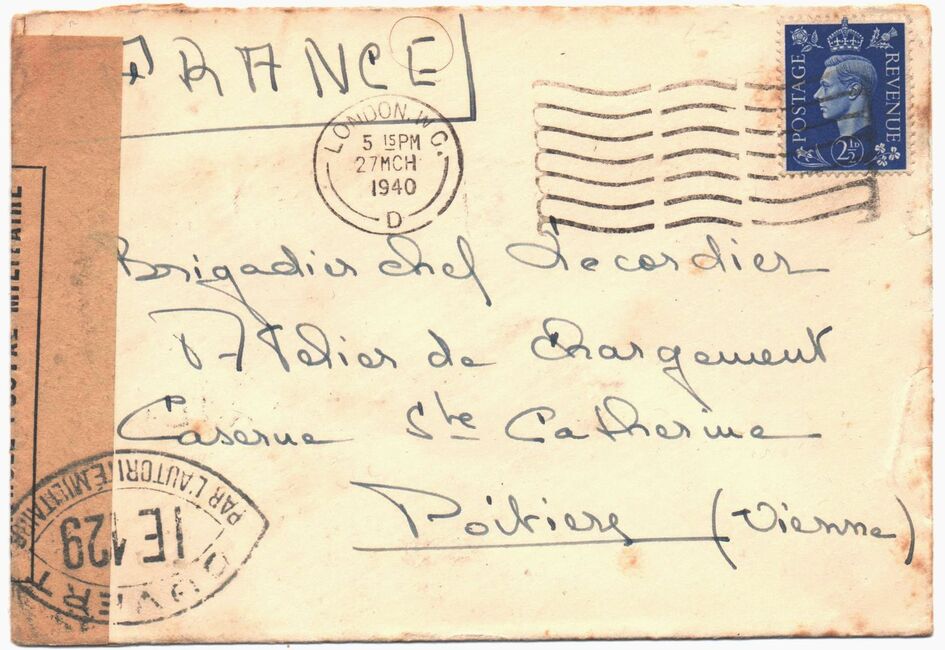 FRANCE
POSTAGE REVENUE
2½D
LONDON. W.C.
5 15PM
27MCH
1940
D
Brigadier chef Lecordier
Atelier de Chargement
Caserne Ste Catherine
Poitiers (Vienne)
POSTAL MILITAIRE
PAR L'AUTORITÉ MILITAIRE
IE 129
OUVERT